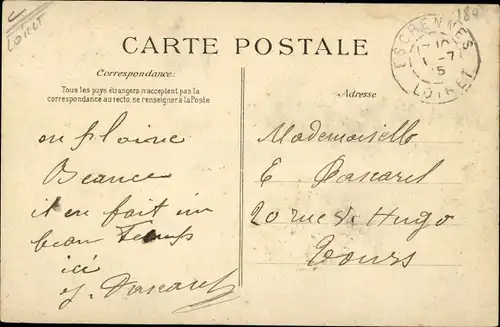 Loiret
189
CARTE POSTALE
ESCRENNES
10
1 - 7
5
LOIRET
Correspondance:
Tous les pays étrangers n'acceptent pas la
correspondance au recto, se renseigner à la Poste
Adresse
en plaine
Beauce
il en fait un
beau Temps
ici
Mademoiselle
E
20 rue V. Hugo
Tours